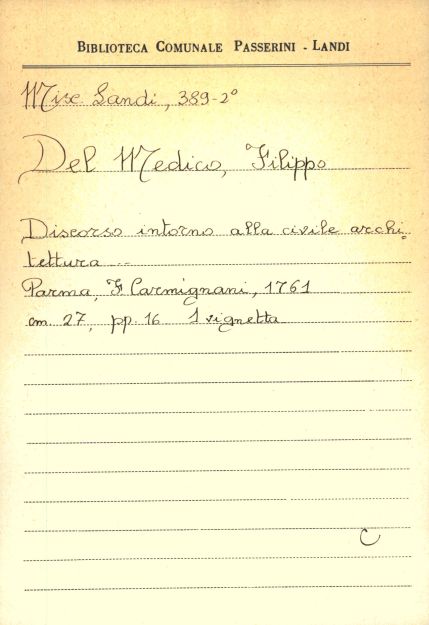 BIBLIOTECA COMUNALE PASSERINI - LANDI
Misc. Landi, 389-2°
Del Medico, Filippo
Discorso intorno alla civile archi=
tettura ...
Parma, F. Carmignani, 1761
cm. 27, pp. 16 1 vignetta
C